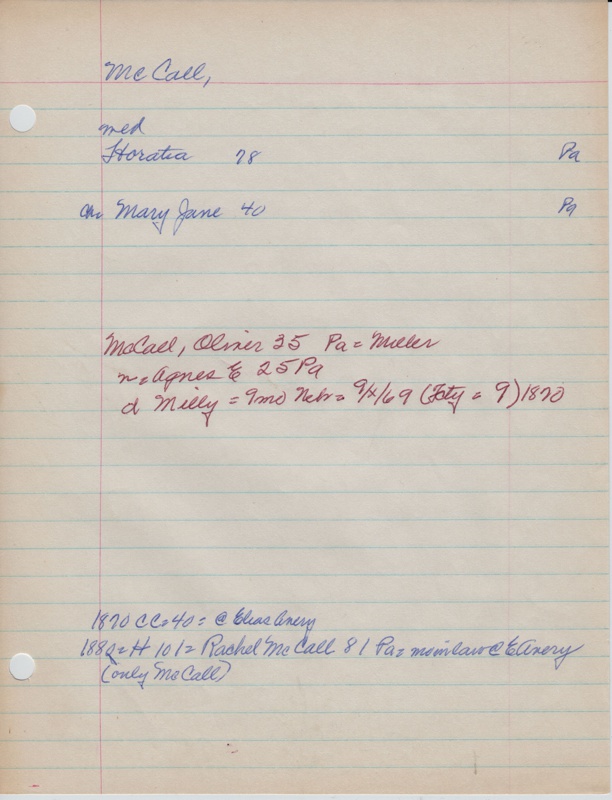 McCall,
med
Horatia 78 Pa
ch. Mary Jane 40 Pa
McCall, Oliver 35 Pa = Miller
w = Agnes E 25 Pa
d Milly = 9mo Nebr = 9/x/69 (Foty = 9) 1870
1870 CC = 40 = @ Elias Avery
1880 = H 101 = Rachel McCall 81 Pa = mominlaw @ E Avery
(only McCall)